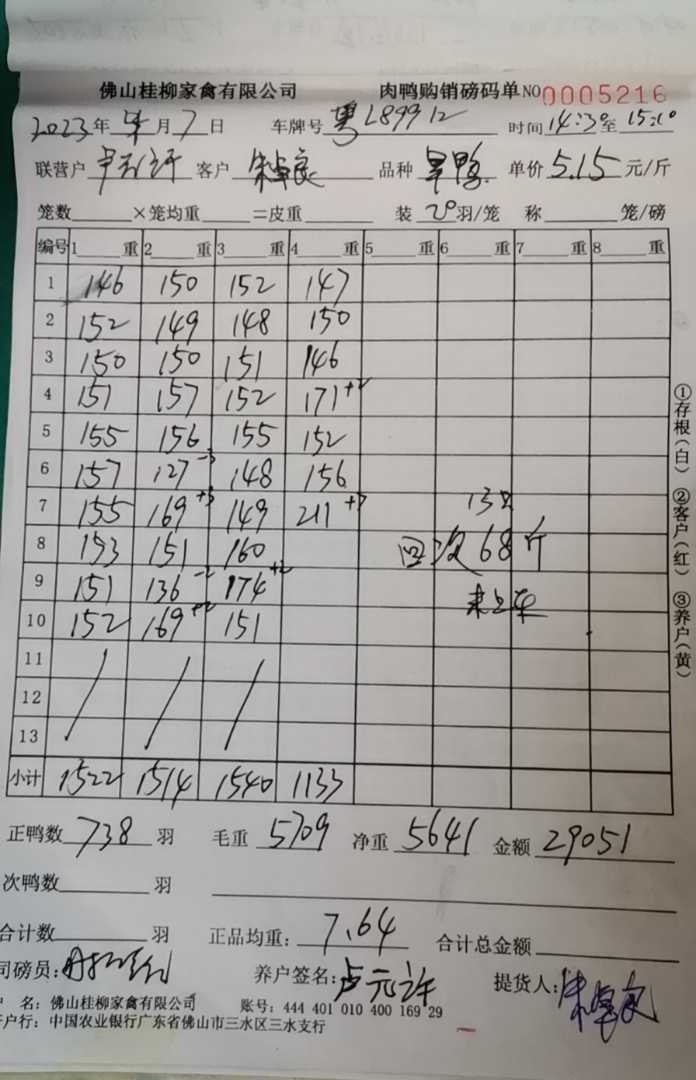 佛山桂柳家禽有限公司 肉鸭购销磅码单 NO 0005216
2023年 月7日 车牌号 粤L89912 时间14:30至15:10
联营户 客户 朱卓良 品种 单价5.15元/斤
笼数 ×笼均重 =皮重 装20羽/笼 称 笼/磅
编号 1 重 2 重 3 重 4 重 5 重 6 重 7 重 8 重
1 146 150 152 147
2 152 149 148 150
3 150 150 151 146
4 151 157 152 171+2
5 155 156 155 152
6 157 127-3 148 156
7 155 169+3 149 211+7 13只
8 153 151 160 回次68斤
9 151 136-2 174+2 未上车
10 152 169+2 151
11
12
13
小计 1522 1514 1540 1133
正鸭数 738 羽 毛重 5709 净重 5641 金额 29051
次鸭数 羽
合计数 羽 正品均重: 7.64 合计总金额
司磅员: 养户签名: 卢元许 提货人: 朱卓良
户 名: 佛山桂柳家禽有限公司 账号: 444 401 010 400 169 29
开户行: 中国农业银行广东省佛山市三水区三水支行
①存根(白) ②客户(红) ③养户(黄)